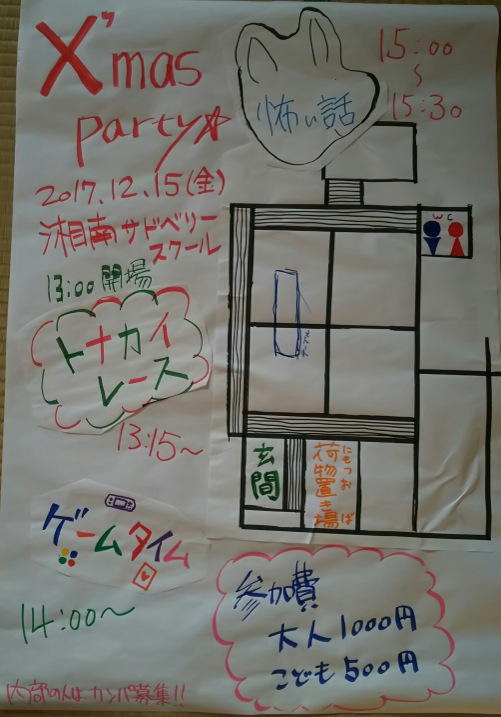 X'mas
party☆
2017.12.15(金)
湘南サドベリー
スクール
13:00 開場
トナカイ
レース
13:15〜
ゲームタイム
14:00〜
内部の人はカンパ募集!!
怖い話
15:00
〜
15:30
WC
テーブル
玄関
荷物置き場
にもつおきば
参加費
大人1000円
こども500円